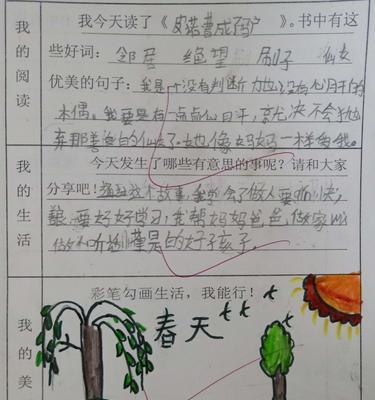 我的阅读
我今天读了《皮诺曹成码户》。书中有这
些好词：邻居 绝望 刷子 仙女
优美的句子：我是一个没有判断力也没有心肝的
木偶。我要是有一点点心肝，就决不会
弃那善良的仙女了。她像妈妈一样
我的生活
今天发生了哪些有意思的事呢？请和大家
分享吧！这个故事，我学会了做人要
要好好学习，我帮妈妈爸爸，做家
做不听 的好孩子。
我的美
彩笔勾画生活，我能行！
春天